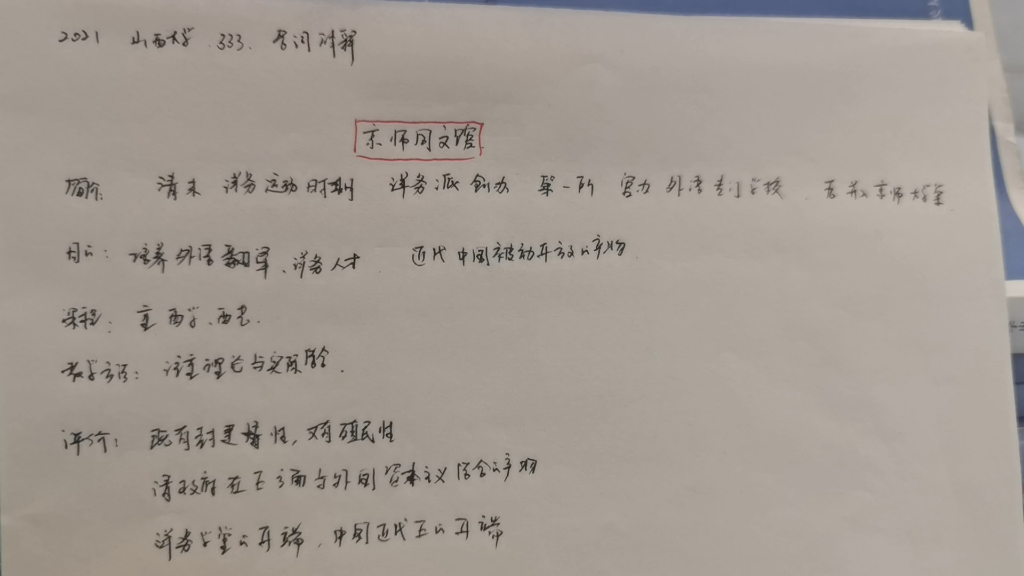 2021 山西大学 333. 名词解释
京师同文馆
简介: 清末 洋务运动时期 洋务派创办 第一所 官办 外语专门学校. 后并入京师大学堂
目的: 培养外语翻译、洋务人才 近代中国被动开放的产物
课程: 重西学、西艺.
教学方法: 注重理论与实际结合.
评价: 既有封建性, 又有殖民性
清政府在正面与外国资本主义结合的产物
洋务学堂的开端, 中国近代的开端